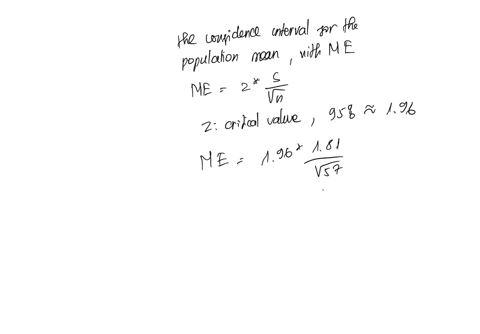 the confidence interval for the
population mean, with ME
ME = z* s/√n
z: critical value, 95% ≈ 1.96
ME = 1.96* 1.81/√57